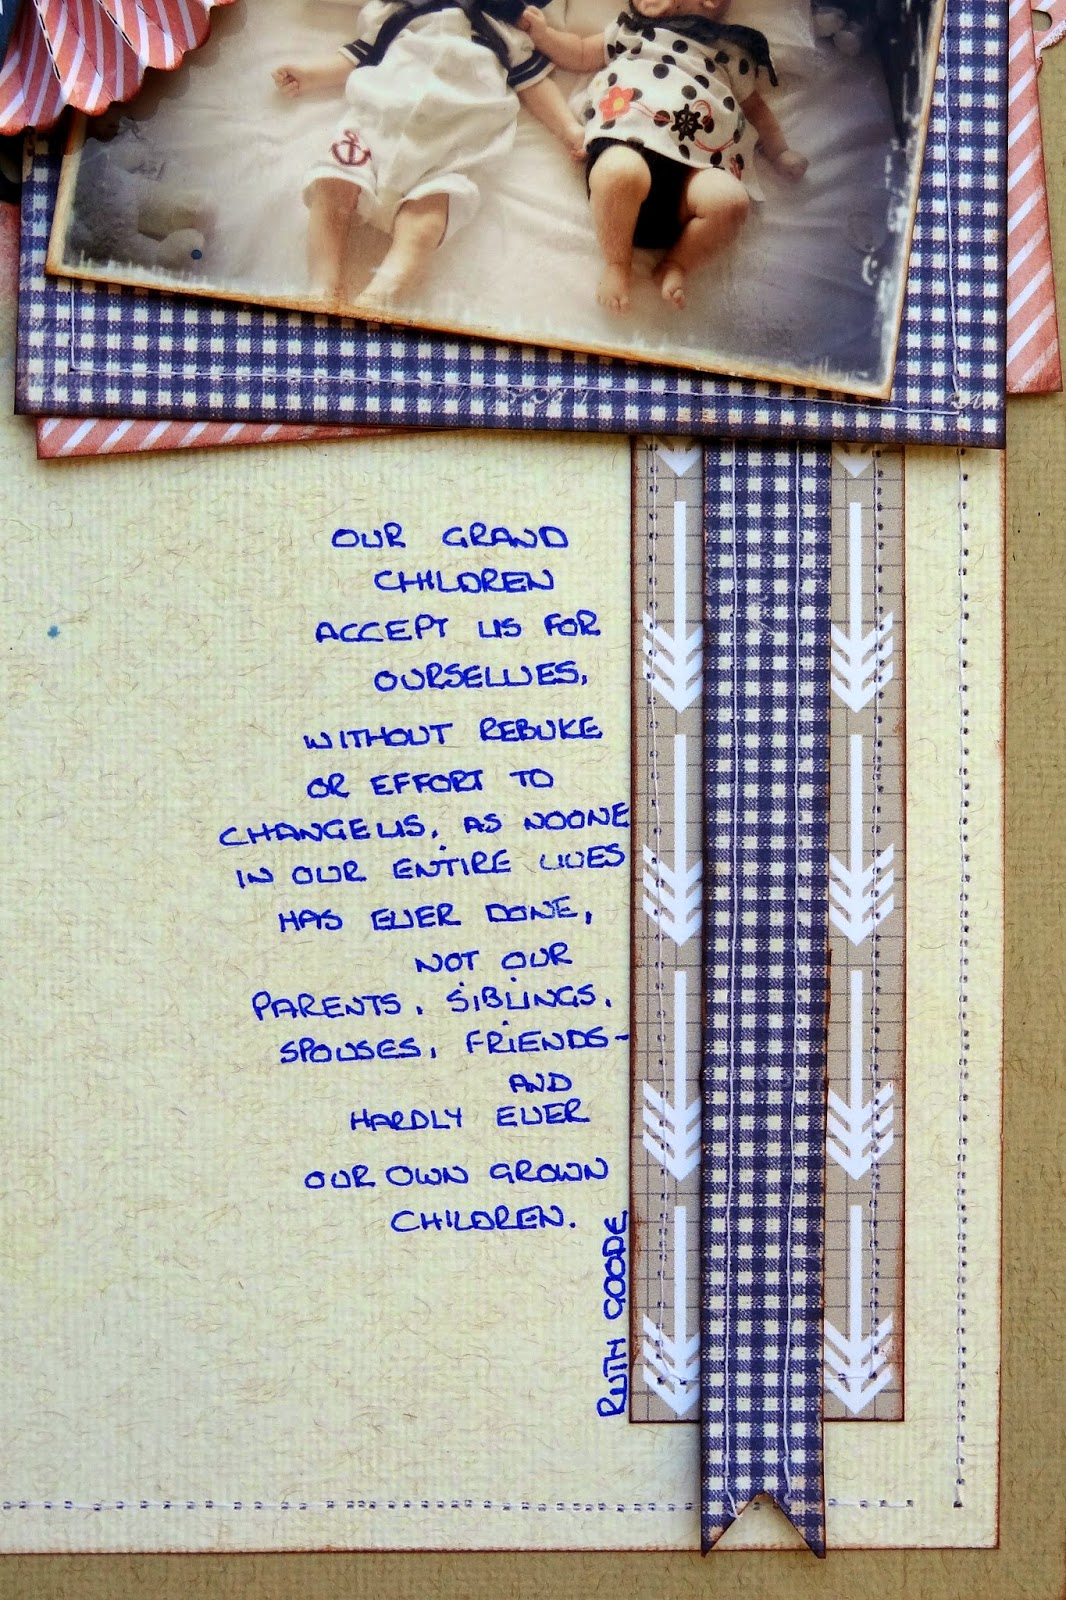 OUR GRAND
CHILDREN
ACCEPT US FOR
OURSELVES,
WITHOUT REBUKE
OR EFFORT TO
CHANGE US, AS NOONE
IN OUR ENTIRE LIVES
HAS EVER DONE,
NOT OUR
PARENTS, SIBLINGS,
SPOUSES, FRIENDS-
AND
HARDLY EVER
OUR OWN GROWN
CHILDREN.
RUTH GOODE